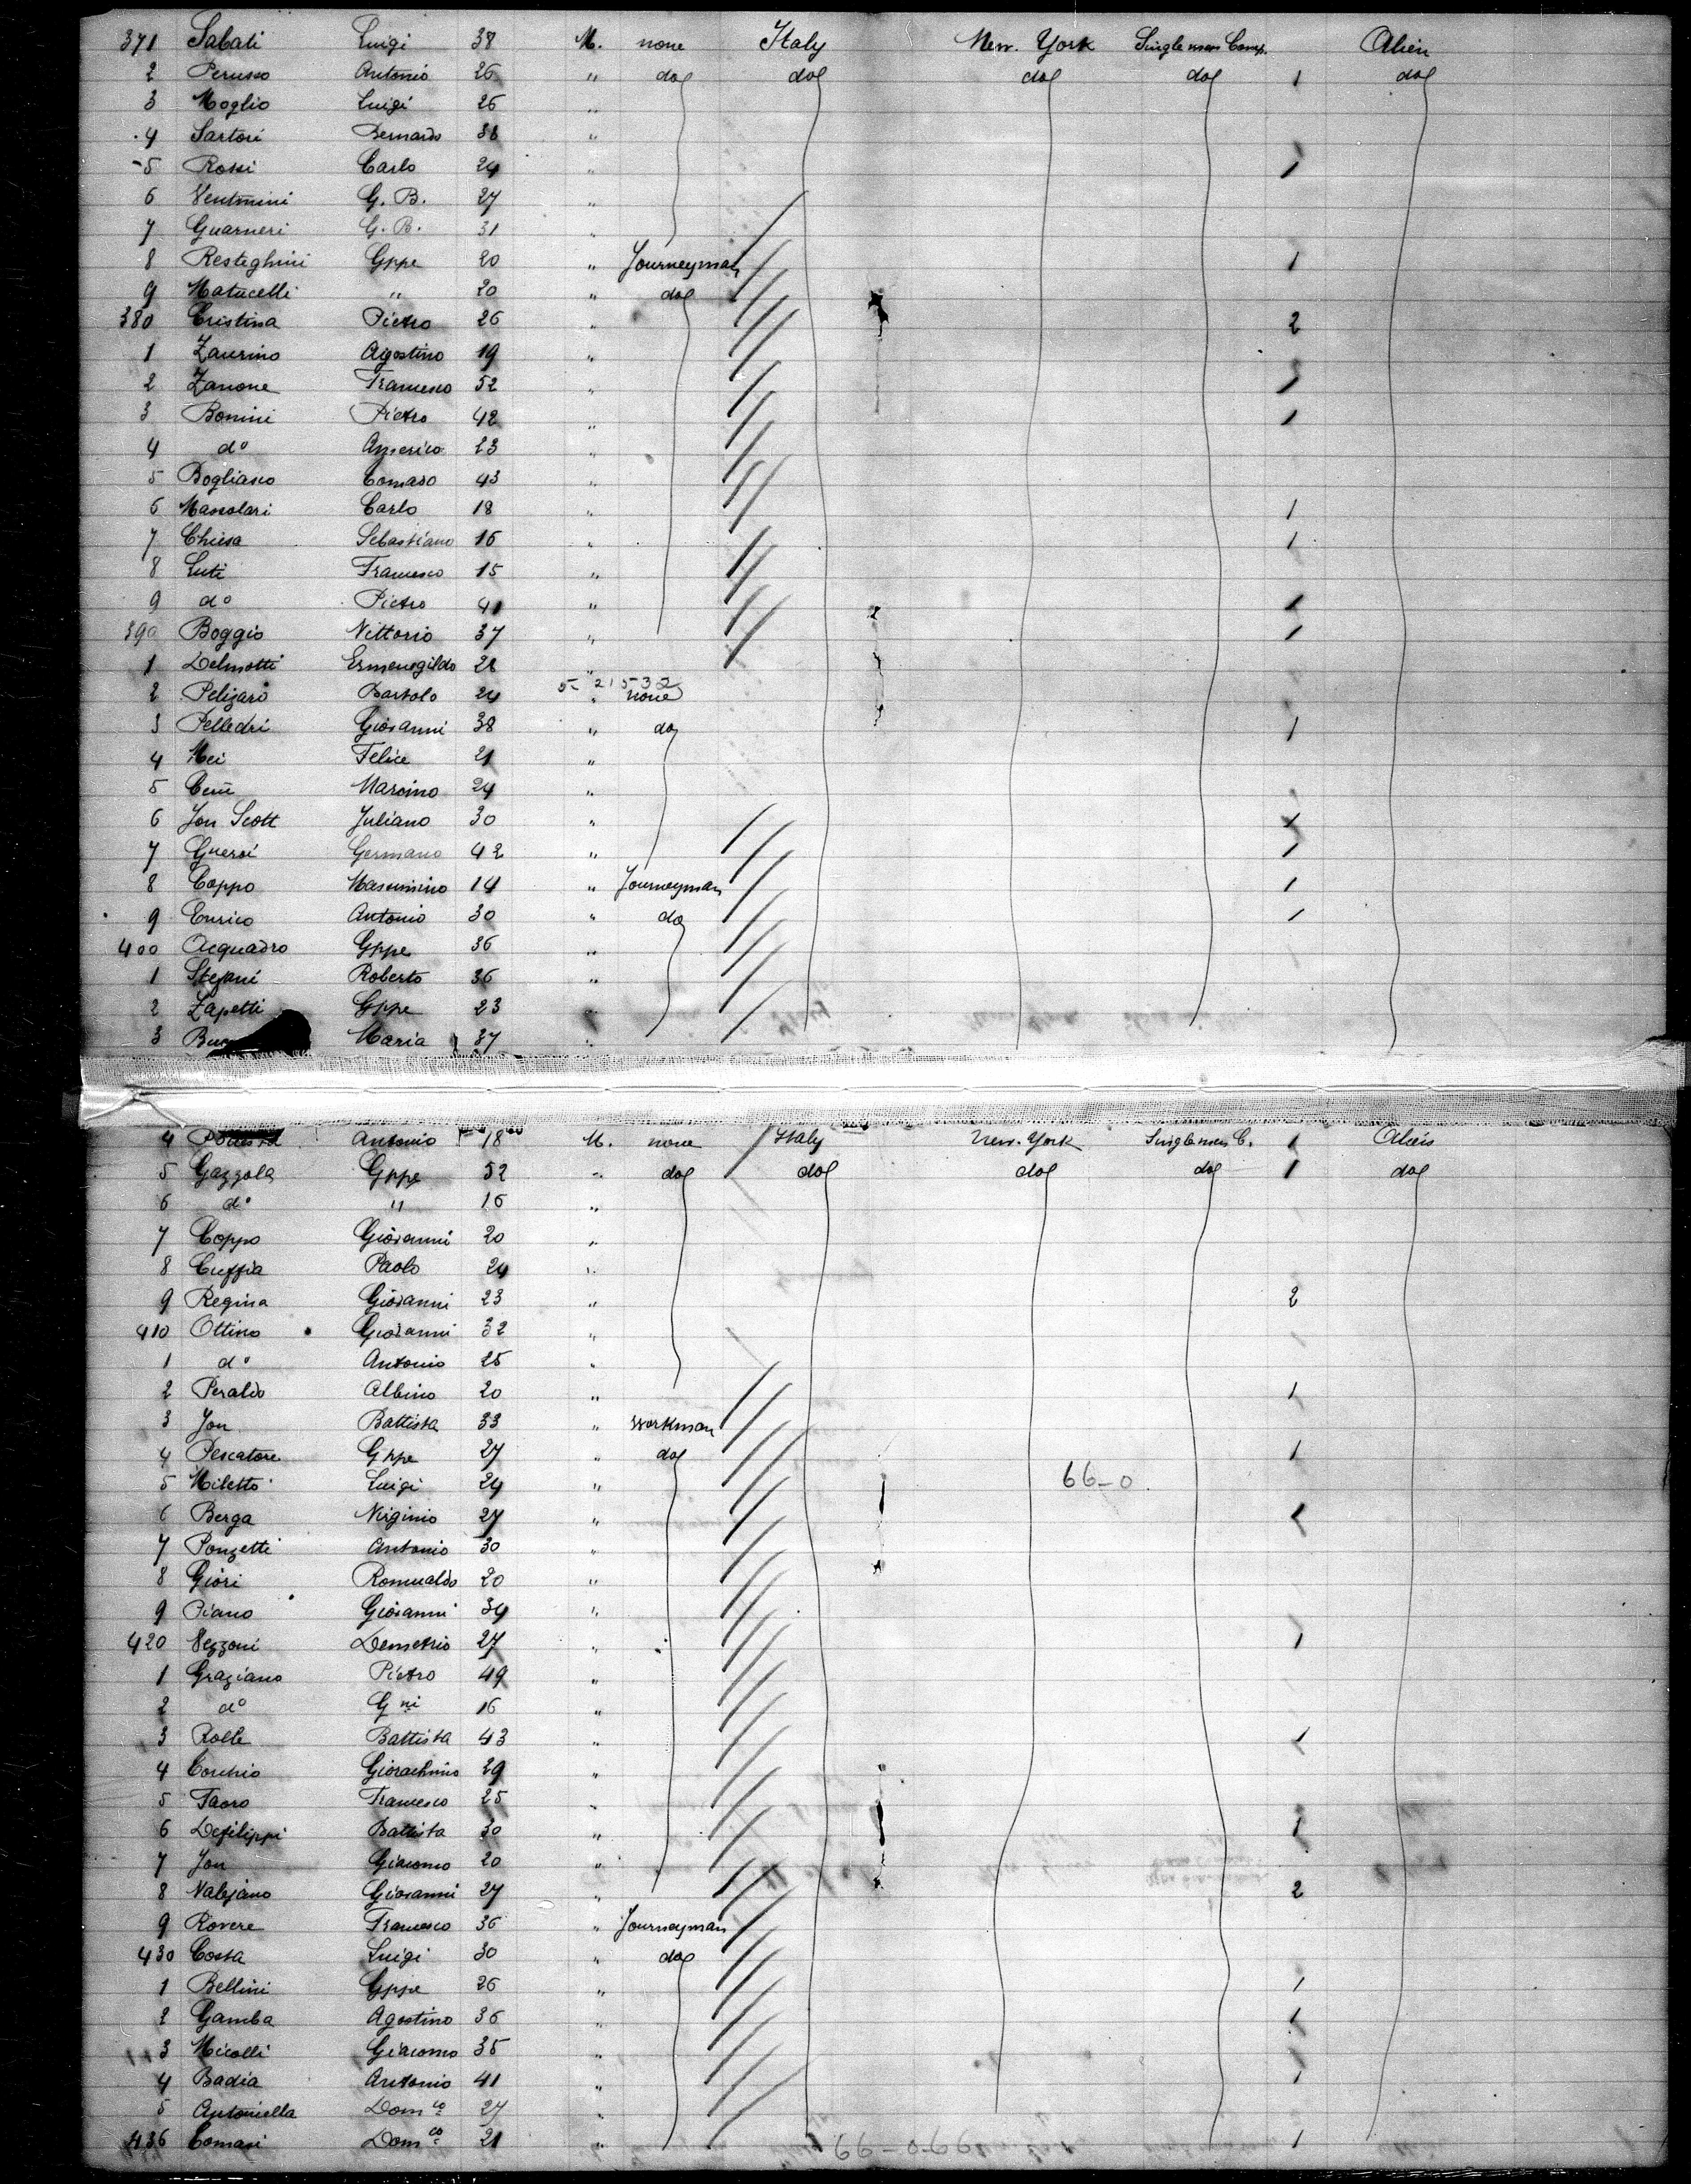 371 Sabati Luigi 38 M. none Italy New. York Single men Comp. Alien
2 Perusso Antonio 26 " do do do do 1 do
3 Moglio Luigi 26 "
4 Sartori Bernardo 38 "
5 Rossi Carlo 24 1
6 Ventimini G. B. 27 "
7 Guarneri G. B. 31 "
8 Resteghini Gppe 20 " Journeyman 1
9 Matucelli " 20 " do
380 Cristina Pietro 26 " 2
1 Zaurino Agostino 19 "
2 Zanone Francesco 52 " 1
3 Bonini Pietro 42 " 1
4 do Americo 23 "
5 Bogliasco Comaso 43 "
6 Mascolari Carlo 18 " 1
7 Chiesa Sebastiano 16 " 1
8 Luti Francesco 15 "
9 do Pietro 41 " 1
390 Boggio Vittorio 37 " 1
1 Delmotti Ermenegildo 28 "
2 Peligaro Bartolo 24 " none
3 Pelledri Giovanni 38 " do 1
4 Mei Felice 21 "
5 Marcino 24 "
6 Jon Scott Juliano 30 " 1
7 Guersi Germano 42 " 1
8 Coppo Massimino 14 " Journeyman 1
9 Enrico Antonio 30 " do 1
400 Acquadro Gppe 36 "
1 Stefani Roberto 36 "
2 Zapetti Gppe 23
3 Maria 37
4 Antonio 18 M. none Italy New. York Single men C. 1 Alien
5 Gazzola Gppe 52 " do do do do 1 do
6 do " 16 "
7 Coppo Giovanni 20 "
8 Cuffia Paolo 24 "
9 Regina Giovanni 23 " 2
410 Ottino Giovanni 32 "
1 do Antonio 25 "
2 Peraldo Albino 20 " 1
3 Jon Battista 33 " workman
4 Pescatore Gppe 27 " do 1
5 Miletto Luigi 24 " 66-0
6 Berga Virginio 27 " 1
7 Ponzetti Antonio 30 "
8 Giori Romualdo 20 "
9 Piano Giovanni 34 "
420 Vezzoni Demetrio 27 " 1
1 Graziano Pietro 49 "
2 do Gni 16 "
3 Rolle Battista 43 " 1
4 Corchio Giorachino 39 "
5 Faoro Francesco 25 "
6 Defilippi Battista 30 " 1
7 Jon Giacomo 20 "
8 Valejano Giovanni 27 " 2
9 Rovere Francesco 36 " Journeyman
430 Costa Luigi 30 " do
1 Bellini Gppe 26 " 1
2 Gamba Agostino 36 " 1
3 Micolli Giacomo 35 "
4 Badia Antonio 41 " 1
5 Antoniella Dom co 27 "
436 Comasi Dom co 21 " 1